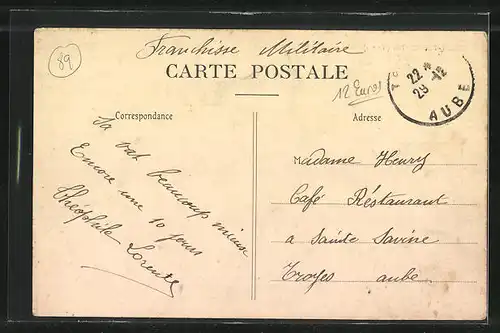 89
Franchisse Militaire
CARTE POSTALE
12 Euros
22 *
29 -12
AUBE
Correspondance
Adresse
Sa vat beaucoup mieux
Encore une 10 jours
Théophile Lorente
Madame Henry
Café Réstaurant
a Sainte Savine
Troyes aube